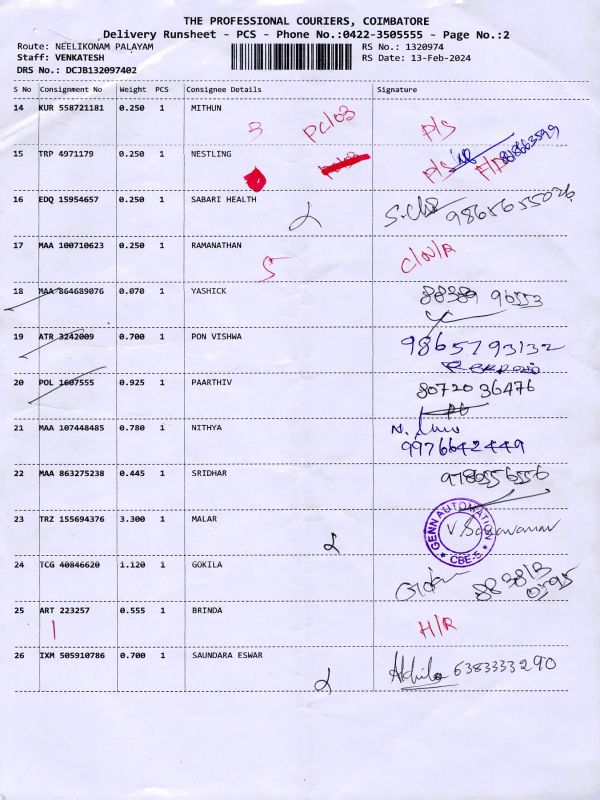 THE PROFESSIONAL COURIERS, COIMBATORE
Delivery Runsheet - PCS - Phone No.:0422-3505555 - Page No.:2
Route: NEELIKONAM PALAYAM RS No.: 1320974
Staff: VENKATESH RS Date: 13-Feb-2024
DRS No.: DCJB132097402
S No Consignment No Weight PCS Consignee Details Signature
14 KUR 558721181 0.250 1 MITHUN
3 PC/03 P/S
15 TRP 4971179 0.250 1 NESTLING
P/S H/D
16 EDQ 15954657 0.250 1 SABARI HEALTH
2
17 MAA 100710623 0.250 1 RAMANATHAN
5 C/N/R
18 MAA 864689076 0.070 1 YASHICK 88389 96553
19 ATR 3242009 0.700 1 PON VISHWA 9865793132
20 POL 1607555 0.925 1 PAARTHIV 80720 36476
21 MAA 107448485 0.780 1 NITHYA
9976642449
22 MAA 863275238 0.445 1 SRIDHAR 9786556556
23 TRZ 155694376 3.300 1 MALAR
2 GENN AUTOMATION CBE-5 V Saravanan
24 TCG 40846620 1.120 1 GOKILA
25 ART 223257 0.555 1 BRINDA
1 H/R
26 IXM 505910786 0.700 1 SAUNDARA ESWAR
2 Akhila 6383333290